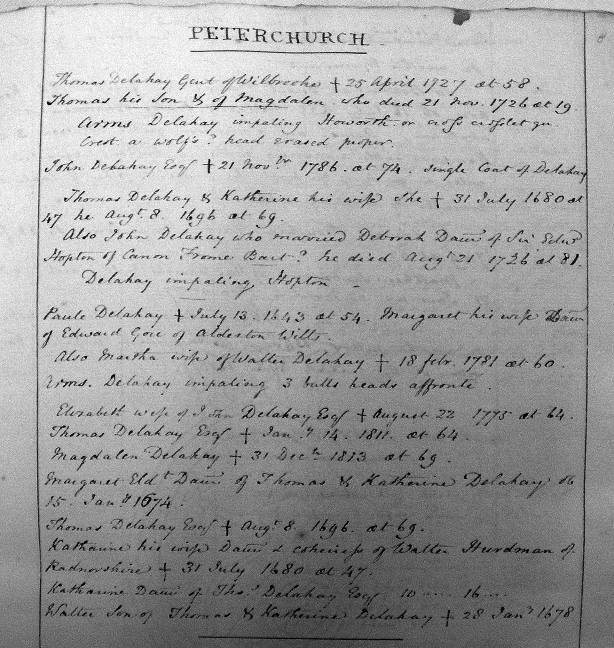 PETERCHURCH
Thomas Delahay Gent of Wilbrooke † 25 April 1727 æt 58.
Thomas his Son & of Magdalen who died 21 Nov. 1726 æt 19
Arms Delahay impaling Howorth or cross crosslet gu.
Crest a wolf's? head erased proper.
John Delahay Esqr † 21 Novbr 1786. æt 74. Single Coat of Delahay
Thomas Delahay & Katherine his wife She † 31 July 1680 æt
47 he Augt. 8. 1696 æt 69.
Also John Delahay who married Deborah Daur of Sir Edwd
Hopton of Canon Frome Bart? he died Augt 21 1726 æt 81.
Delahay impaling Hopton –
Paule Delahay † July 13. 1643 æt 54. Margaret his wife Daur
of Edward Gore of Alderton Wilts.
Also Martha wife of Walter Delahay † 18 febr. 1781 æt 60.
Arms. Delahay impaling 3 bulls heads affronte.
Elizabeth wife of John Delahay Esqr † August 22 1775 æt 64.
Thomas Delahay Esqr † Jany 14. 1811. æt 64.
Magdalen Delahay † 31 Decr 1813 æt 69.
Margaret Eldt Daur of Thomas & Katherine Delahay ob
15. Jany 1674.
Thomas Delahay Esqr † Augt 8. 1696. æt 69.
Katharine his wife Daur & coheiress of Walter Hurdman of
Radnorshire † 31 July 1680 æt 47.
Katharine Daur of Thos. Delahay Esqr 10 ... 16 ...
Walter Son of Thomas & Katherine Delahay † 28 Jany 1678